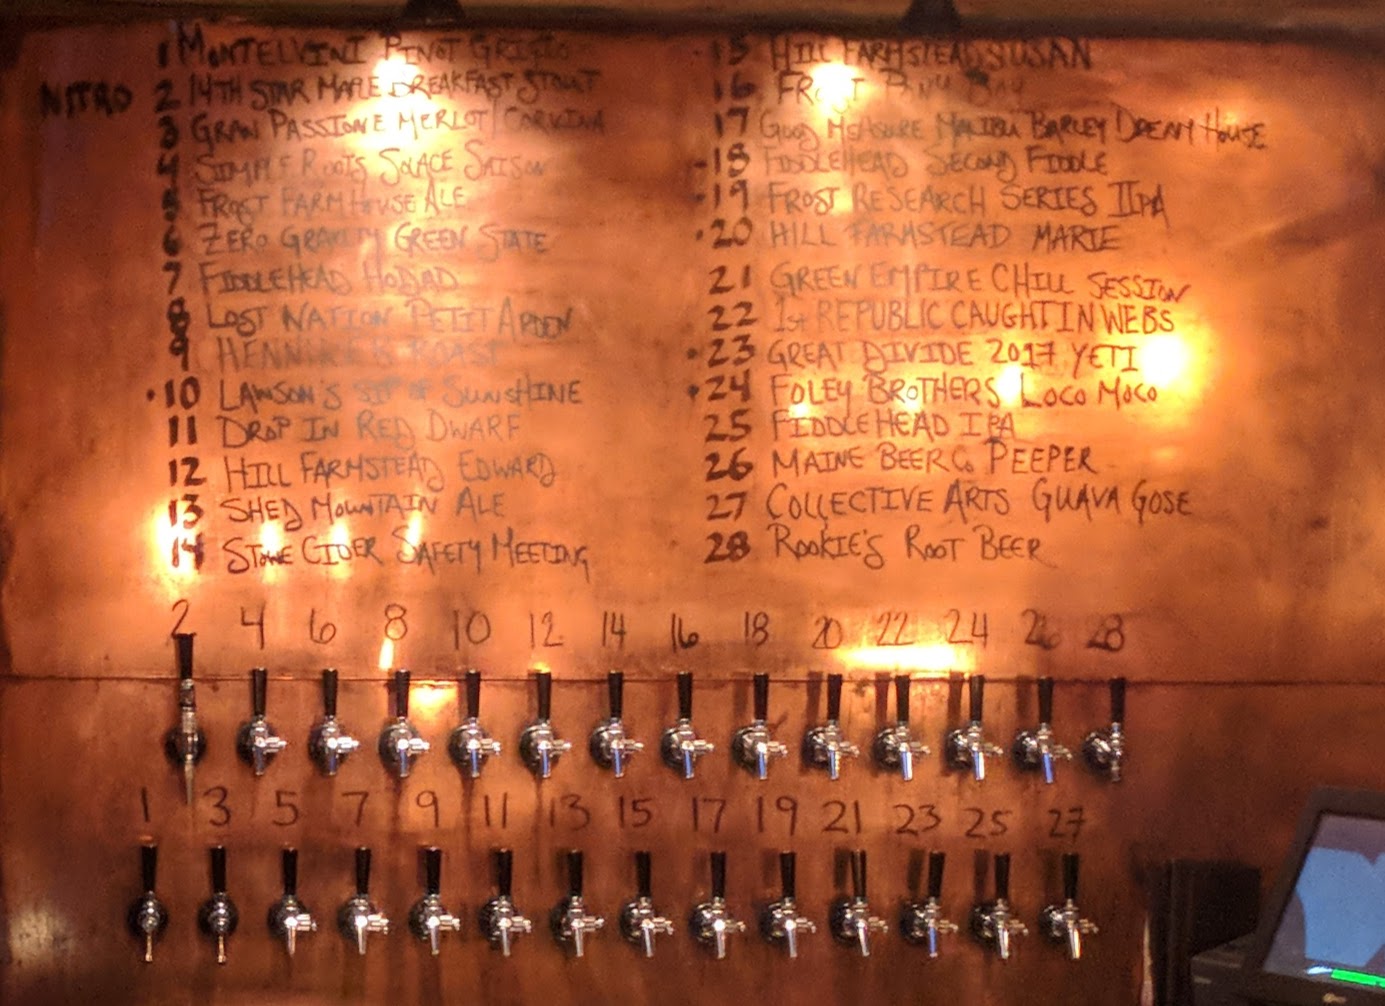 1 MONTELVINI PINOT GRIGIO
NITRO 2 14TH STAR MAPLE BREAKFAST STOUT
3 GRAN PASSIONE MERLOT/CORVINA
4 SIMPLE ROOTS SOLACE SAISON
5 FROST FARMHOUSE ALE
6 ZERO GRAVITY GREEN STATE
7 FIDDLEHEAD HODAD
8 LOST NATION PETIT ARDEN
9 ROAST
10 LAWSON'S SIP OF SUNSHINE
11 DROP IN RED DWARF
12 HILL FARMSTEAD EDWARD
13 SHED MOUNTAIN ALE
14 STOWE CIDER SAFETY MEETING
15 HILL FARMSTEAD SUSAN
16 FROST
17 GOOD MEASURE MALIBU BARLEY DREAM HOUSE
18 FIDDLEHEAD SECOND FIDDLE
19 FROST RESEARCH SERIES IIPA
20 HILL FARMSTEAD MARIE
21 GREEN EMPIRE CHILL SESSION
22 1ST REPUBLIC CAUGHT IN WEBS
23 GREAT DIVIDE 2017 YETI
24 FOLEY BROTHERS LOCO MOCO
25 FIDDLEHEAD IPA
26 MAINE BEER CO PEEPER
27 COLLECTIVE ARTS GUAVA GOSE
28 ROOKIE'S ROOT BEER
2 4 6 8 10 12 14 16 18 20 22 24 26 28
1 3 5 7 9 11 13 15 17 19 21 23 25 27